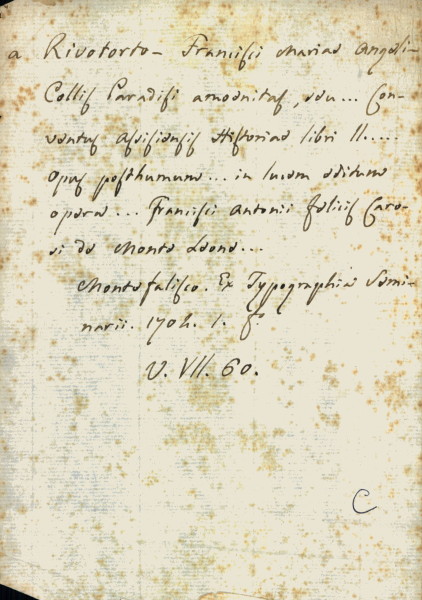 a Rivotorto - Francisci Mariae Angeli -
Collis Paradisi amoenitas, seu ... Con-
ventus Assisiensis Historiae libri II.....
opus posthumum ... in lucem editum
opera ... Francisci Antonii Felicis Caro-
si de Monte Leone ...
Montefalisco. Ex Typographia Semi-
narii. 1704. 1. f.°
V. VII. 60.
C